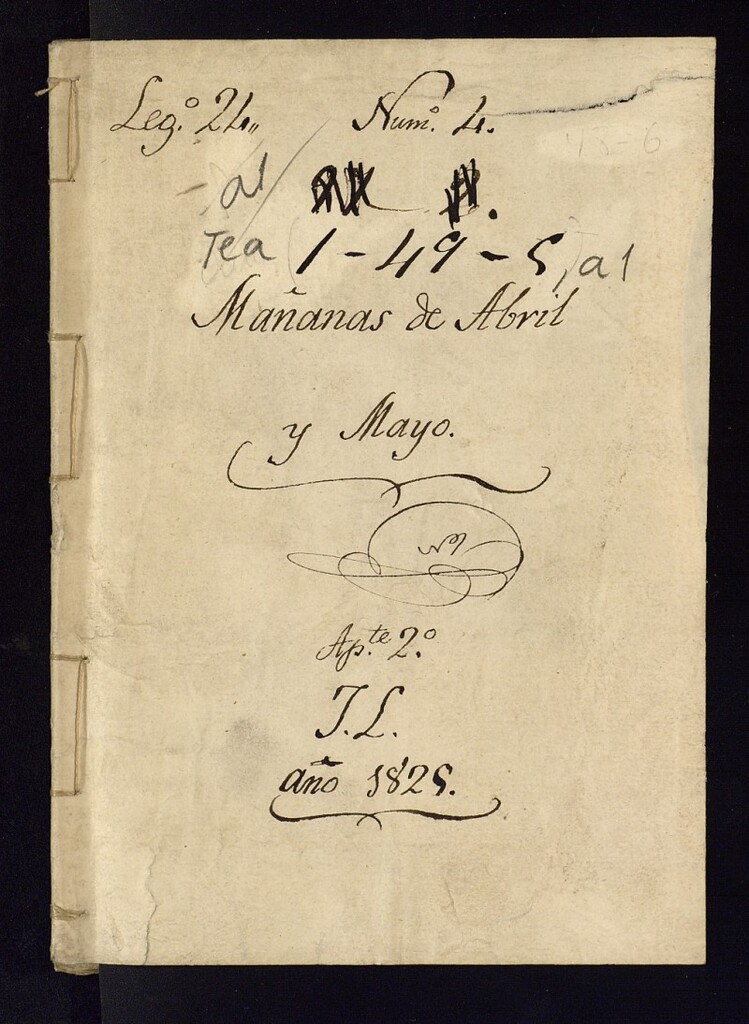 Leg.º 24,, Num.º 4.
a1
Tea 1-49-5, a1
Mañanas de Abril
y Mayo.
Ap.te 2.º
J.L.
año 1825.